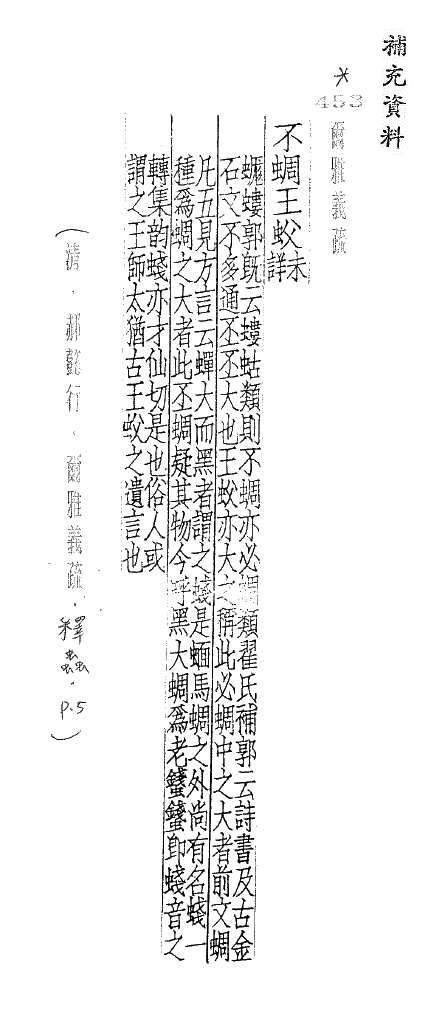 補充資料
*
453
爾雅義疏
不蜩王蚥 未
詳
螻郭既云螻蛄類則不蜩亦必蜩類翟氏補郭云詩書及古金
石文不多通丕丕大也王蚥亦大之稱此必蜩中之大者前文蜩
凡五見方言云蟬大而黑者謂之䗃是蝒馬蜩之外尚有名䗃一
種為蜩之大者此丕蜩疑其物今呼黑大蜩為老即䗃音之
轉集韵䗃亦才仙切是也俗人或
謂之王師太猶古王蚥之遺言也
(清.郝懿行.爾雅義疏.釋蟲.P.5)